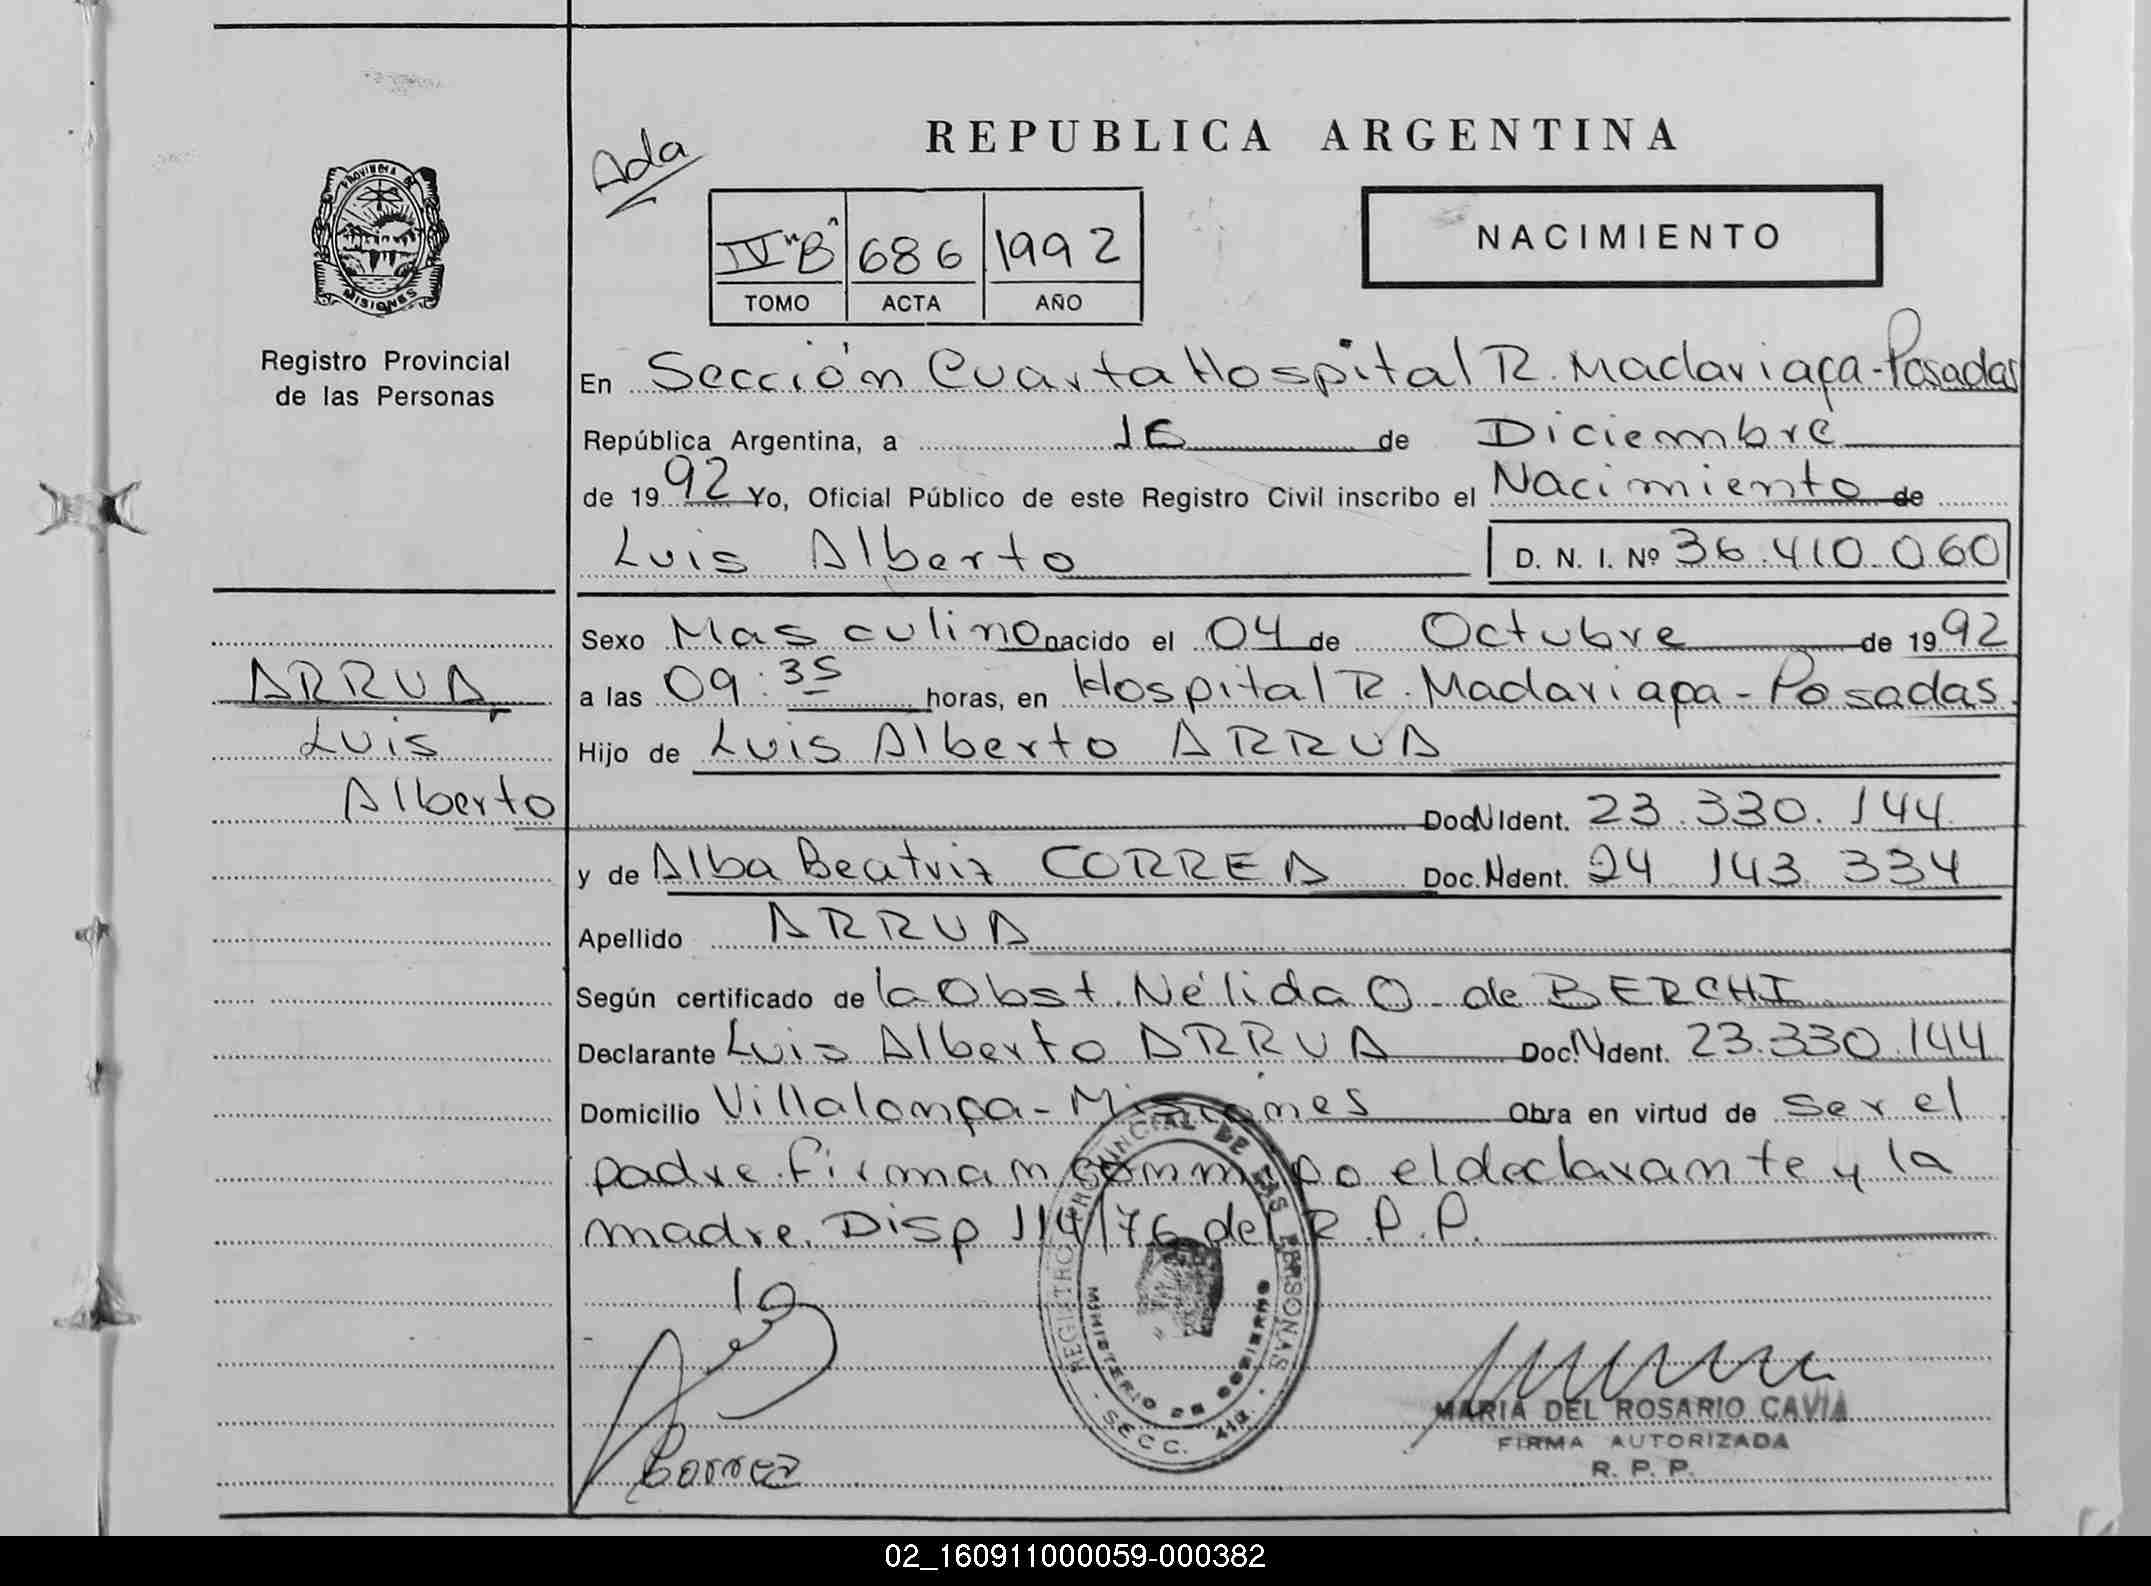 REPUBLICA ARGENTINA
Ada
PROVINCIA DE
MISIONES
Registro Provincial
de las Personas
IV "B" 686 1992
TOMO ACTA AÑO
NACIMIENTO
En Sección Cuarta Hospital R. Madariaga - Posadas
República Argentina, a 16 de Diciembre
de 1992 Yo, Oficial Público de este Registro Civil inscribo el Nacimiento de
Luis Alberto D. N. I. Nº 36.410.060
Sexo Masculino nacido el 04 de Octubre de 1992
ARRUA
a las 09:35 horas, en Hospital R. Madariaga - Posadas.
Luis
Hijo de Luis Alberto ARRUA
Alberto
Doc N Ident. 23.330.144
y de Alba Beatriz CORREA Doc. N Ident. 24 143 334
Apellido ARRUA
Según certificado de la Obst. Nélida O. de BERCHI
Declarante Luis Alberto ARRUA Doc. N Ident. 23.330.144
Domicilio Villalonga - Misiones Obra en virtud de ser el
padre. Firman conmigo el declarante y la
madre. Disp 114/76 del R.P.P.
REGISTRO PROVINCIAL DE LAS PERSONAS
MINISTERIO DE GOBIERNO
SECC. 4ta.
Correa
MARIA DEL ROSARIO CAVIA
FIRMA AUTORIZADA
R. P. P.
02_160911000059-000382